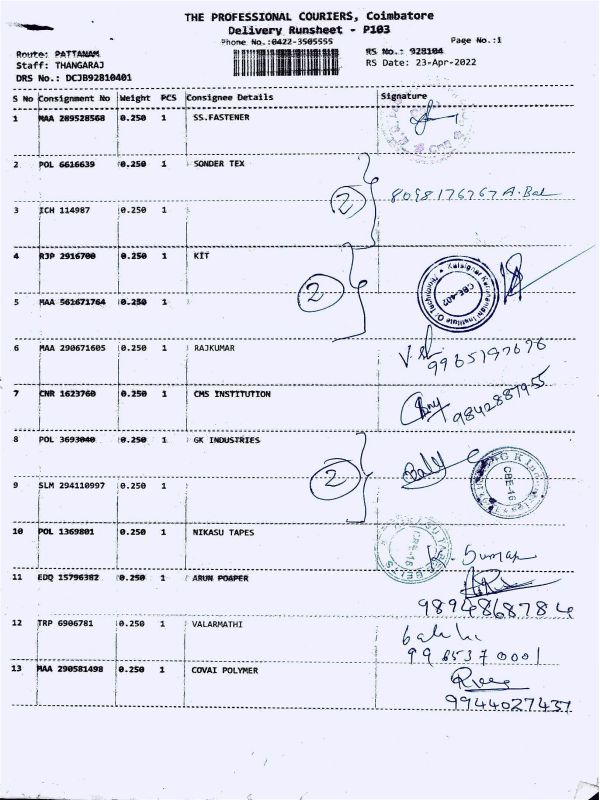 THE PROFESSIONAL COURIERS, Coimbatore
Delivery Runsheet - P103
Phone No.:0422-3505555
Page No.:1
Route: PATTANAM
RS No.: 928104
Staff: THANGARAJ
RS Date: 23-Apr-2022
DRS No.: DCJB92810401
S No Consignment No Weight PCS Consignee Details Signature
1 MAA 289528568 0.250 1 SS.FASTENER
2 POL 6616639 0.250 1 SONDER TEX
2 8098176767 A. Bal
3 ICH 114987 0.250 1
4 RJP 2916700 0.250 1 KIT
2
Kalaignar Karunanidhi Institute Of Technology
CBE-402
5 MAA 561671764 0.250 1
6 MAA 290671605 0.250 1 RAJKUMAR
9965197676
7 CNR 1623760 0.250 1 CMS INSTITUTION
9842887955
8 POL 3693040 0.250 1 GK INDUSTRIES
2
CBE-16
9 SLM 294110997 0.250 1
10 POL 1369801 0.250 1 NIKASU TAPES
K. Suman
11 EDQ 15796382 0.250 1 ARUN POAPER
9894868784
12 TRP 6906781 0.250 1 VALARMATHI
9965370001
13 MAA 290581498 0.250 1 COVAI POLYMER
9944027437